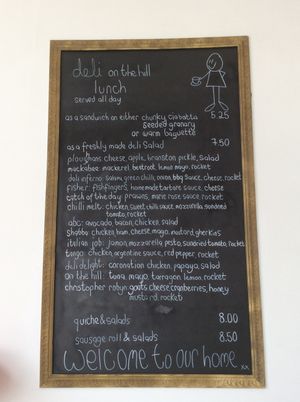 deli on the hill
lunch
served all day
as a sandwich on either chunky ciabatta 5.25
seeded granary
or warm baguette
as a freshly made deli salad 7.50
ploughans cheese, apple, branston pickle, salad
mackabee mackerel, beetroot, lemon mayo, rocket
deli inferno salami, green chilli, onion, bbq sauce, cheese, rocket
fisher fishfingers, homemade tartare sauce, cheese
catch of the day prawns, marie rose sauce, rocket
chilli melt chicken, sweet chilli sauce, mozzarella, sundried
tomato, rocket
abc: avocado, bacon, chicken, salad
shabba chicken, ham, cheese, mayo, mustard, gherkins
italian job: jamon, mozzarella, pesto, sundried tomato, rocket
tango chicken, argentine sauce, red pepper, rocket
deli delight: coronation chicken, papaya, salad
on the hill: tuna, mayo, tarragon, lemon, rocket
christopher robyn goats cheese, cranberries, honey
mustard, rocket
quiche & salads 8.00
sausage roll & salads 8.50
welcome to our home xx